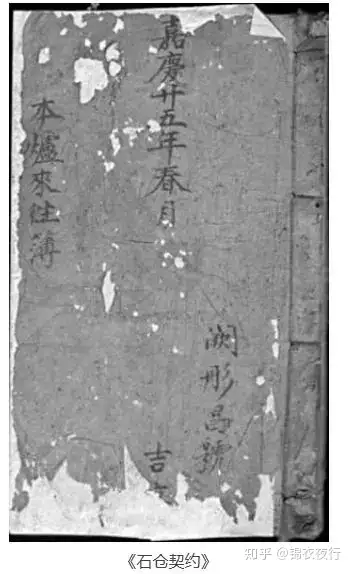 闕彤昌號
嘉慶廿五年春月吉
本爐來往簿
《石仓契约》
知乎 @锦衣夜行